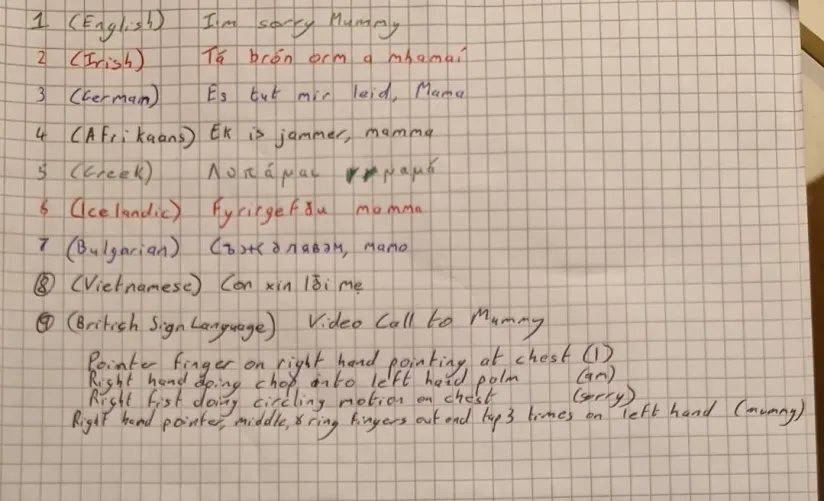 1 (English) I'm sorry Mummy
2 (Irish) Tá brón orm a mhamaí
3 (German) Es tut mir leid, Mama
4 (Afrikaans) Ek is jammer, mamma
5 (Greek) Λυπάμαι μαμά
6 (Icelandic) Fyrirgefðu mamma
7 (Bulgarian) Съжалявам, мамо
8 (Vietnamese) Con xin lỗi mẹ
9 (British Sign Language) Video Call to Mummy
Pointer finger on right hand pointing at chest (I)
Right hand doing chop into left hand palm (am)
Right fist doing circling motion on chest (sorry)
Right hand pointer, middle, & ring fingers out and tap 3 times on left hand (mummy)